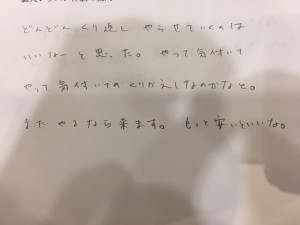 どんどん くり返し やらせていくのは
いいなーと思った。 やって気付いて
やって気付いてのくりかえしなのかなと。
またやるなら来ます。 もっと安いといいな。